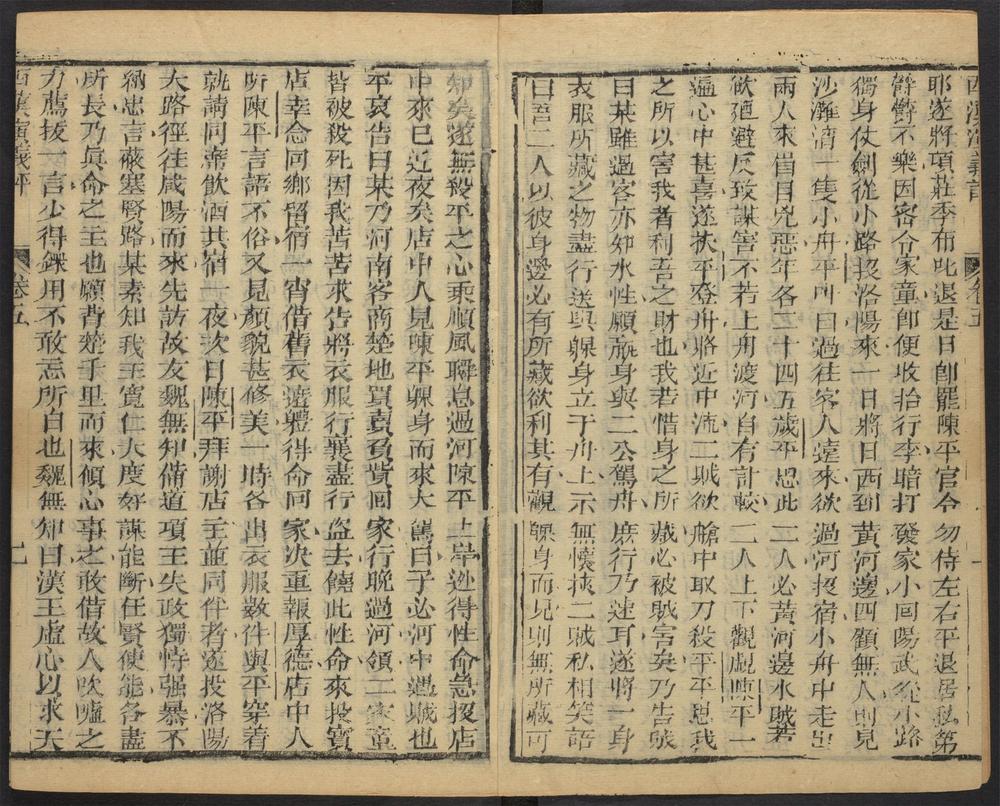 西漢演義評 卷五
耶遂將項莊季布叱退是日卽罷陳平官令勿侍左右平退居私第
欝欝不樂因密令家童卽便收拾行李暗打發家小回陽武從小路
獨身仗劍從小路投洛陽來一日將日西到黃河邊四顧無人則見
沙灘濟一隻小舟平叫曰過往客人遠來欲過河投宿小舟中走出
兩人來眉目兇惡年各二十四五歲平思此二人必黃河邊水賊若
欲廻避反致謀害不若上舟渡河自有計較二人上下觀覷陳平一
遍心中甚喜遂扶平登舟將近中流二賊欲艙中取刀殺平平思我
之所以害我者利吾之財也我若惜身之所藏必被賊害矣乃告賊
曰某雖過客亦知水性願脫身與二公駕舟庶行乃速耳遂將一身
衣服所藏之物盡行送與躶身立于舟上示無懷挾二賊私相笑語
曰吾二人以彼身邊必有所藏欲利其有觀躶身而見則無所藏可
知矣遂無殺平之心乘順風瞬息過河陳平上岸逃得性命急投店
中來已近夜矣店中人見陳平躶身而來大驚曰子必河中遇賊也
平哀告曰某乃河南客商楚地買賣負貲回家行晚過河領二家童
皆被殺死因我苦苦求告將衣服行囊盡行盗去饒此性命來投寶
店幸念同鄉留宿一宵借舊衣遮軆得命回家決重報厚德店中人
听陳平言語不俗又見顏貌甚修美一時各出衣服數件與平穿着
就請同席飲酒共宿一夜次日陳平拜謝店主並同伴者遂投洛陽
大路徑往咸陽而來先訪故友魏無知備道項王失政獨恃强暴不
納忠言蔽塞賢路某素知我王寬仁大度好謀能斷任賢使能各盡
所長乃眞命之主也願背楚千里而來傾心事之敢借故人吹噓之
力薦拔一言少得錄用不敢忘所自也魏無知曰漢王虛心以求天
西漢演義評 卷五 七